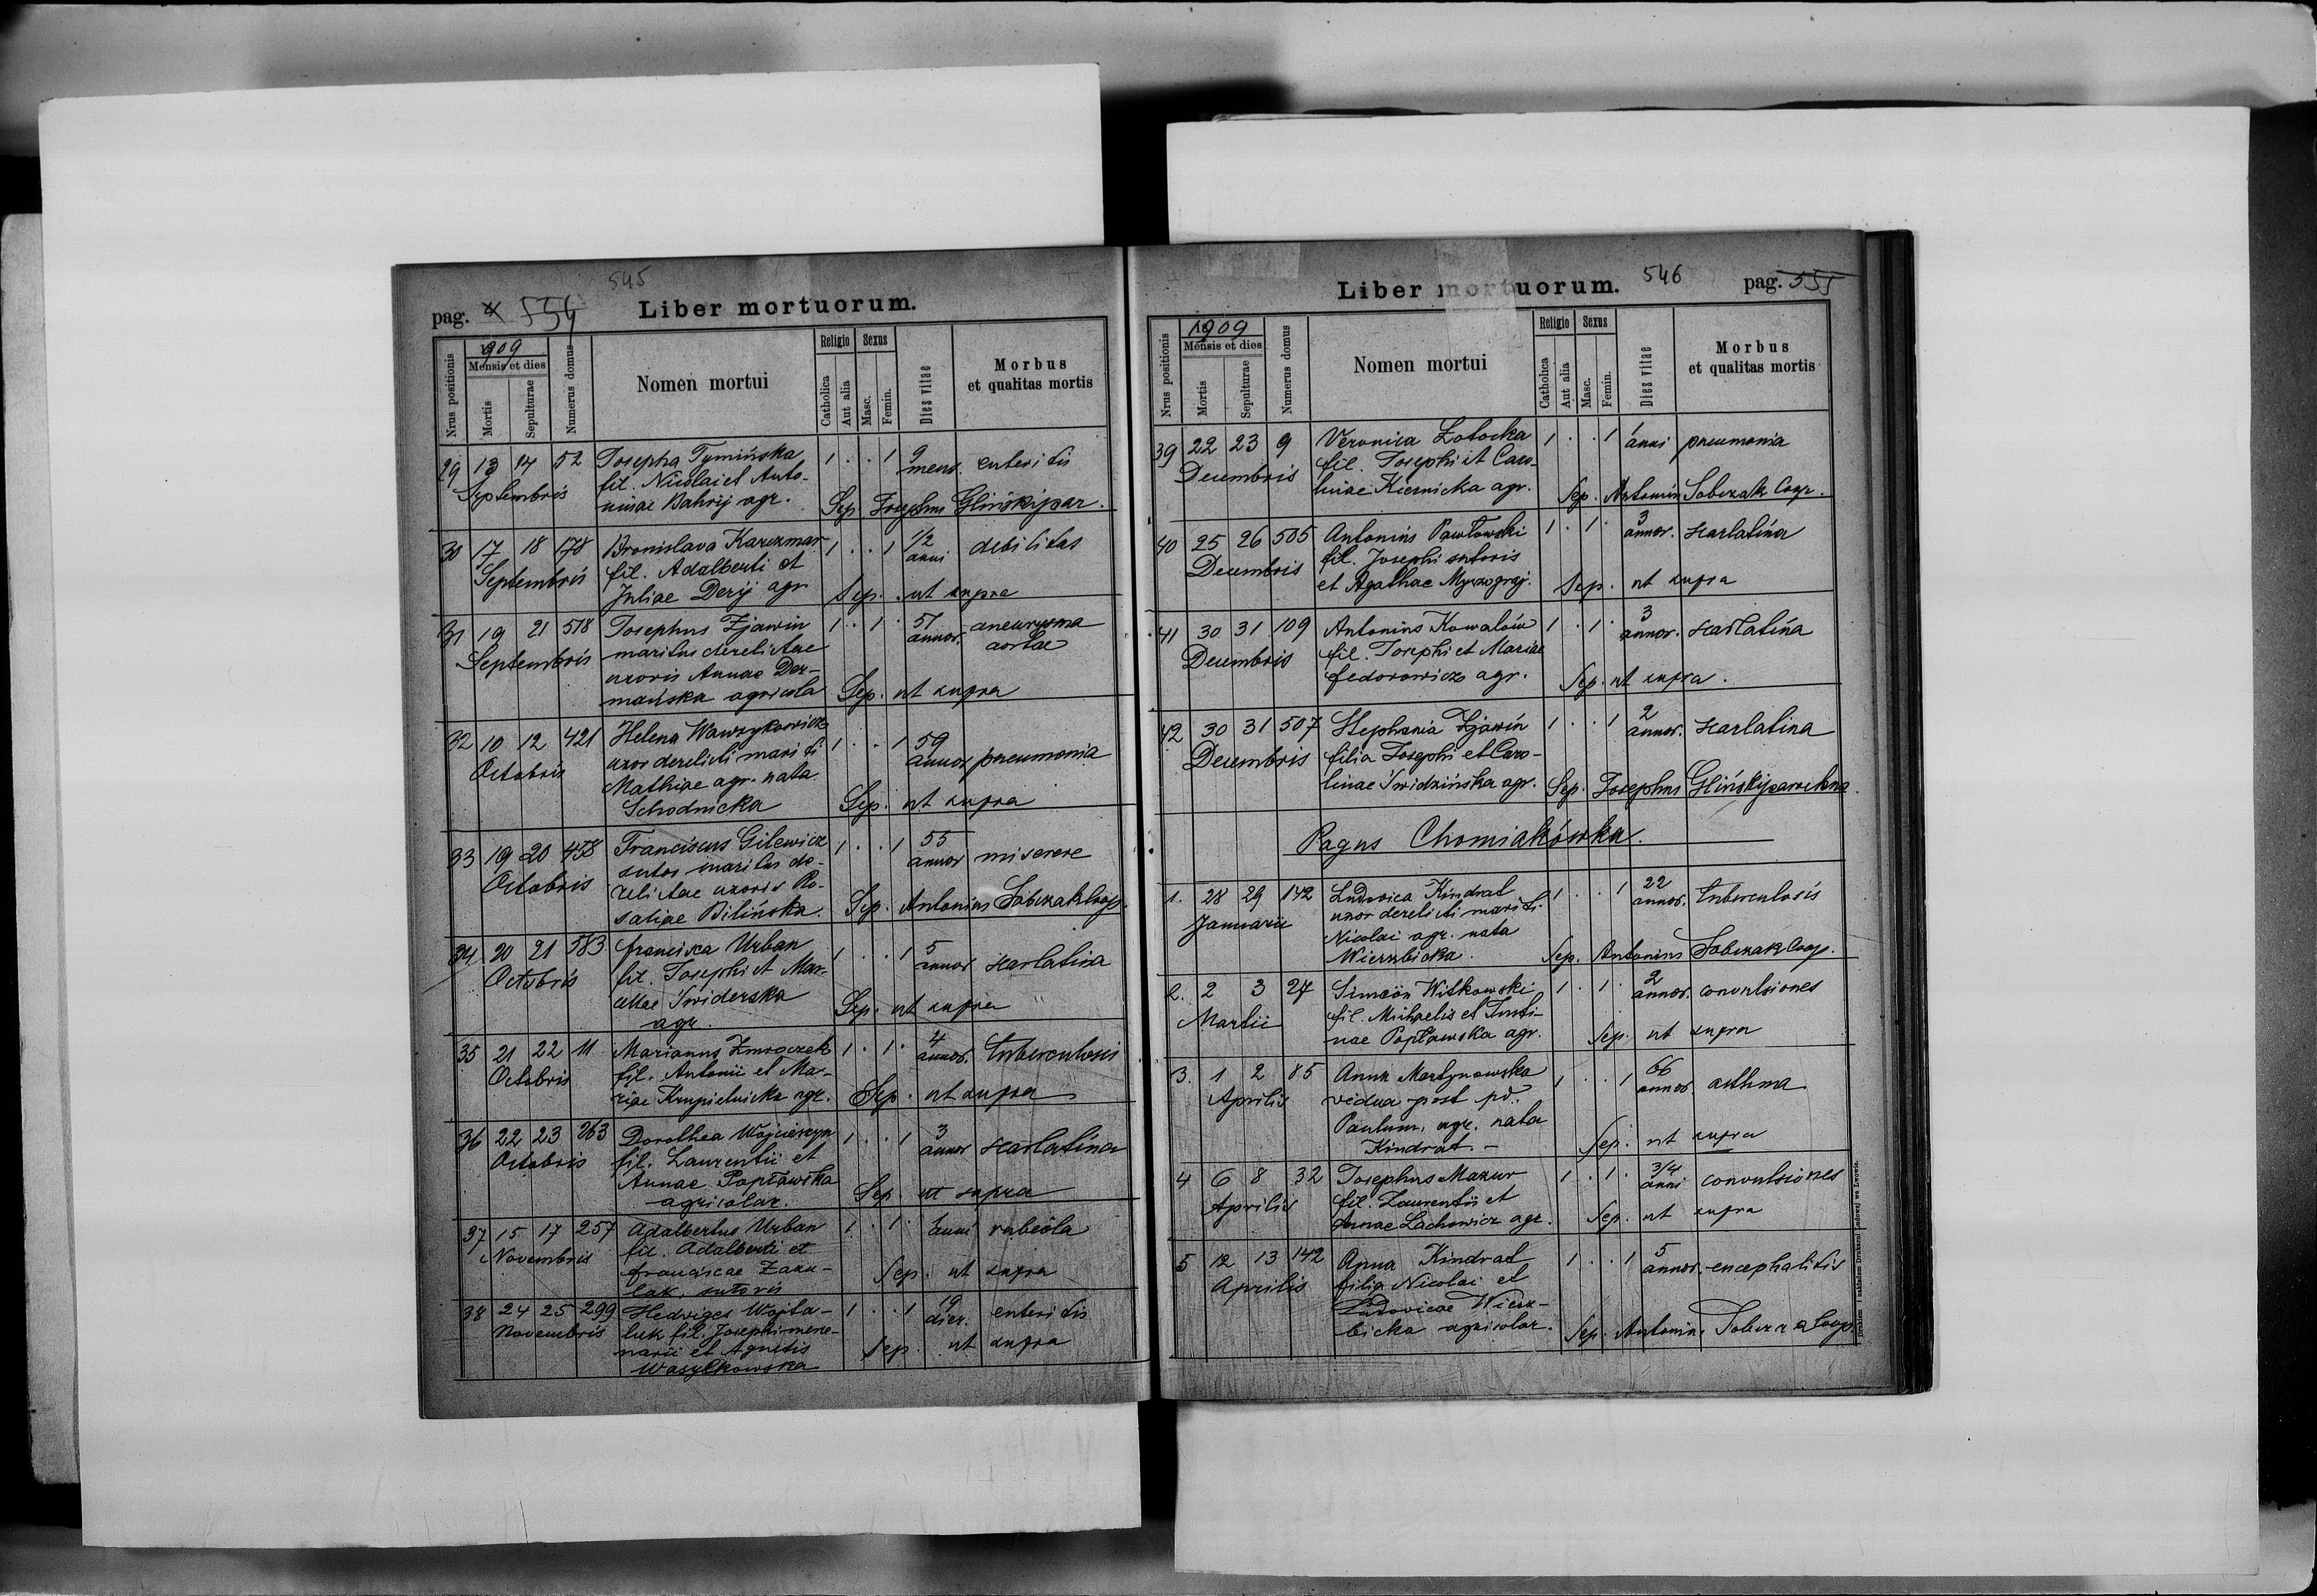 545
pag. 554
Liber mortuorum.
Nrus positionis
1909
Mensis et dies
Mortis
Sepulturae
Numerus domus
Nomen mortui
Religio
Catholica
Aut alia
Sexus
Masc.
Femin.
Dies vitae
Morbus
et qualitas mortis
29 13 14 52 Josepha Tymińska 1 . . 1 9 enteritis
Septembris fil. Nicolai et Anto- mens.
ninae Bahrij agr. Sep. Josephus Gliński par.
30 17 18 178 Bronislava Karczmar 1 . . 1 1/2 debilitas
Septembris fil. Adalberti et anni
Juliae Derij agr Sep. ut supra
31 19 21 518 Josephus Zjawin 1 . 1 . 57 aneurysma
Septembris maritus derelictae annor. aortae
uxoris Annae Der-
mańska agricola Sep. ut supra
32 10 12 421 Helena Wawrykowicz 1 . . 1 59
Octobris uxor derelicti mariti annor pneumonia
Mathiae agr. nata
Schodnicka Sep. ut supra
33 19 20 458 Franciscus Gilewicz 1 . . 1 55
Octobris sutor maritus de- annor miserere
relictae uxoris Ro-
saliae Bilińska. Sep. Antonius Sobczak Coop.
34 20 21 583 Francisca Urban 1 . . 1 5
Octobris fil. Josephi et Mar- annor scarlatina
cellae Świderska
agr. Sep. ut supra
35 21 22 11 Marianus Zmroczek 1 . 1 . 4
Octobris fil. Antonii et Ma- annor. tuberculosis
riae Krupielnicka agr. Sep. ut supra
36 22 23 263 Dorothea Wojcieszyn 1 . . 1 3
Octobris fil. Laurentii et annor scarlatina
Annae Popławska
agricolar. Sep. ut supra
37 15 17 257 Adalbertus Urban 1 . 1 . anni rubeola
Novembris fil. Adalberti et
Franciscae Zaku-
lak, sutoris Sep. ut supra
38 24 25 299 Hedviges Wojta- 1 . . 1 19 enteritis
Novembris luk fil. Josephi merce- dier.
narii et Agnetis Sep. ut supra
Wasylkowska
Liber mortuorum.
546
pag. 555
Nrus positionis
1909
Mensis et dies
Mortis
Sepulturae
Numerus domus
Nomen mortui
Religio
Catholica
Aut alia
Sexus
Masc.
Femin.
Dies vitae
Morbus
et qualitas mortis
39 22 23 9 Veronica Łotocka 1 . . 1 1 pneumonia
Decembris fil. Josephi et Caro- anni
linae Kiernicka agr. Sep. Antonius Sobczak Coop.
40 25 26 505 Antonius Pawłowski 1 . 1 . 3 scarlatina
Decembris fil. Josephi sutoris annor.
et Agathae Sep. ut supra
41 30 31 109 Antonius Kowalów 1 . 1 . 3 scarlatina
Decembris fil. Josephi et Mariae annor.
Fedorowicz agr. Sep. ut supra.
42 30 31 507 Stephania Zjawin 1 . . 1 2 scarlatina
Decembris filia Josephi et Caro- annor.
linae Świdzińska agr. Sep. Josephus Gliński
Pagus Chomiakówka.
1. 28 29 142 Ludovica Kindrat 1 . . 1 22 tuberculosis
Januarii uxor derelicti mariti annor.
Nicolai agr. nata
Wierzbicka. Sep. Antonius Sobczak Coop.
2. 2 3 27 Simeon Witkowski 1 . 1 . 2 convulsiones
Martii fil. Michaelis et Justi- annor.
nae Popławska agr. Sep. ut supra
3. 1 2 85 Anna Martynowska 1 . . 1 66 asthma
Aprilis vidua post pd. annor.
Paulum, agr. nata
Kindrat. - Sep. ut supra
4 6 8 32 Josephus Mazur 1 . 1 . 3/4 convulsiones
Aprilis fil. Laurentii et anni
Annae Lachowicz agr. Sep. ut supra
5 12 13 142 Anna Kindrat 1 . . 1 5
Aprilis filia Nicolai et annor. encephalitis
Ludovicae Wierz-
bicka agricolar. Sep. Antonius Sobczak Coop
Drukiem i nakładem Drukarni Ludowej we Lwowie.